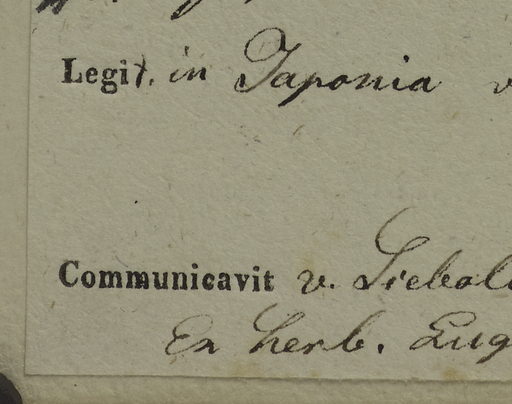 Legit. in Japonia v
Communicavit v. Siebol
Ex herb. Lug